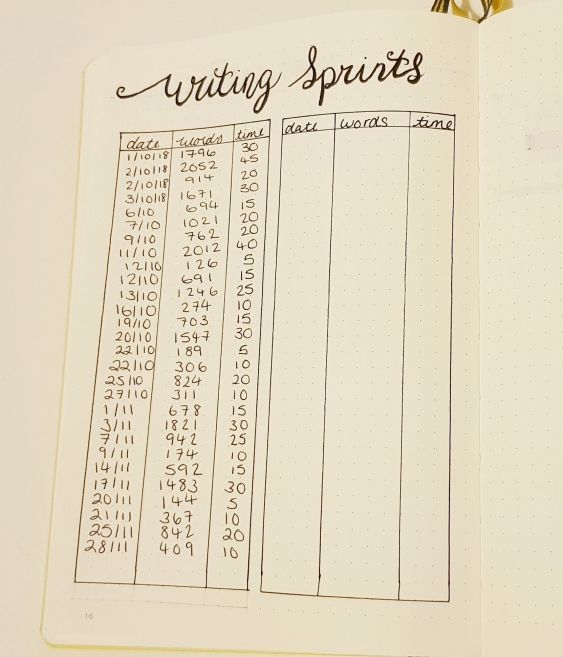 Writing Sprints
date words time date words time
1/10/18 1796 30
2/10/18 2052 45
2/10/18 914 20
3/10/18 1671 30
6/10 694 15
7/10 1021 20
9/10 762 20
11/10 2012 40
12/10 126 5
12/10 691 15
13/10 1246 25
16/10 274 10
19/10 703 15
20/10 1547 30
22/10 189 5
22/10 306 10
25/10 824 20
27/10 311 10
1/11 678 15
3/11 1821 30
7/11 942 25
9/11 174 10
14/11 592 15
17/11 1483 30
20/11 144 5
21/11 367 10
25/11 842 20
28/11 409 10
16